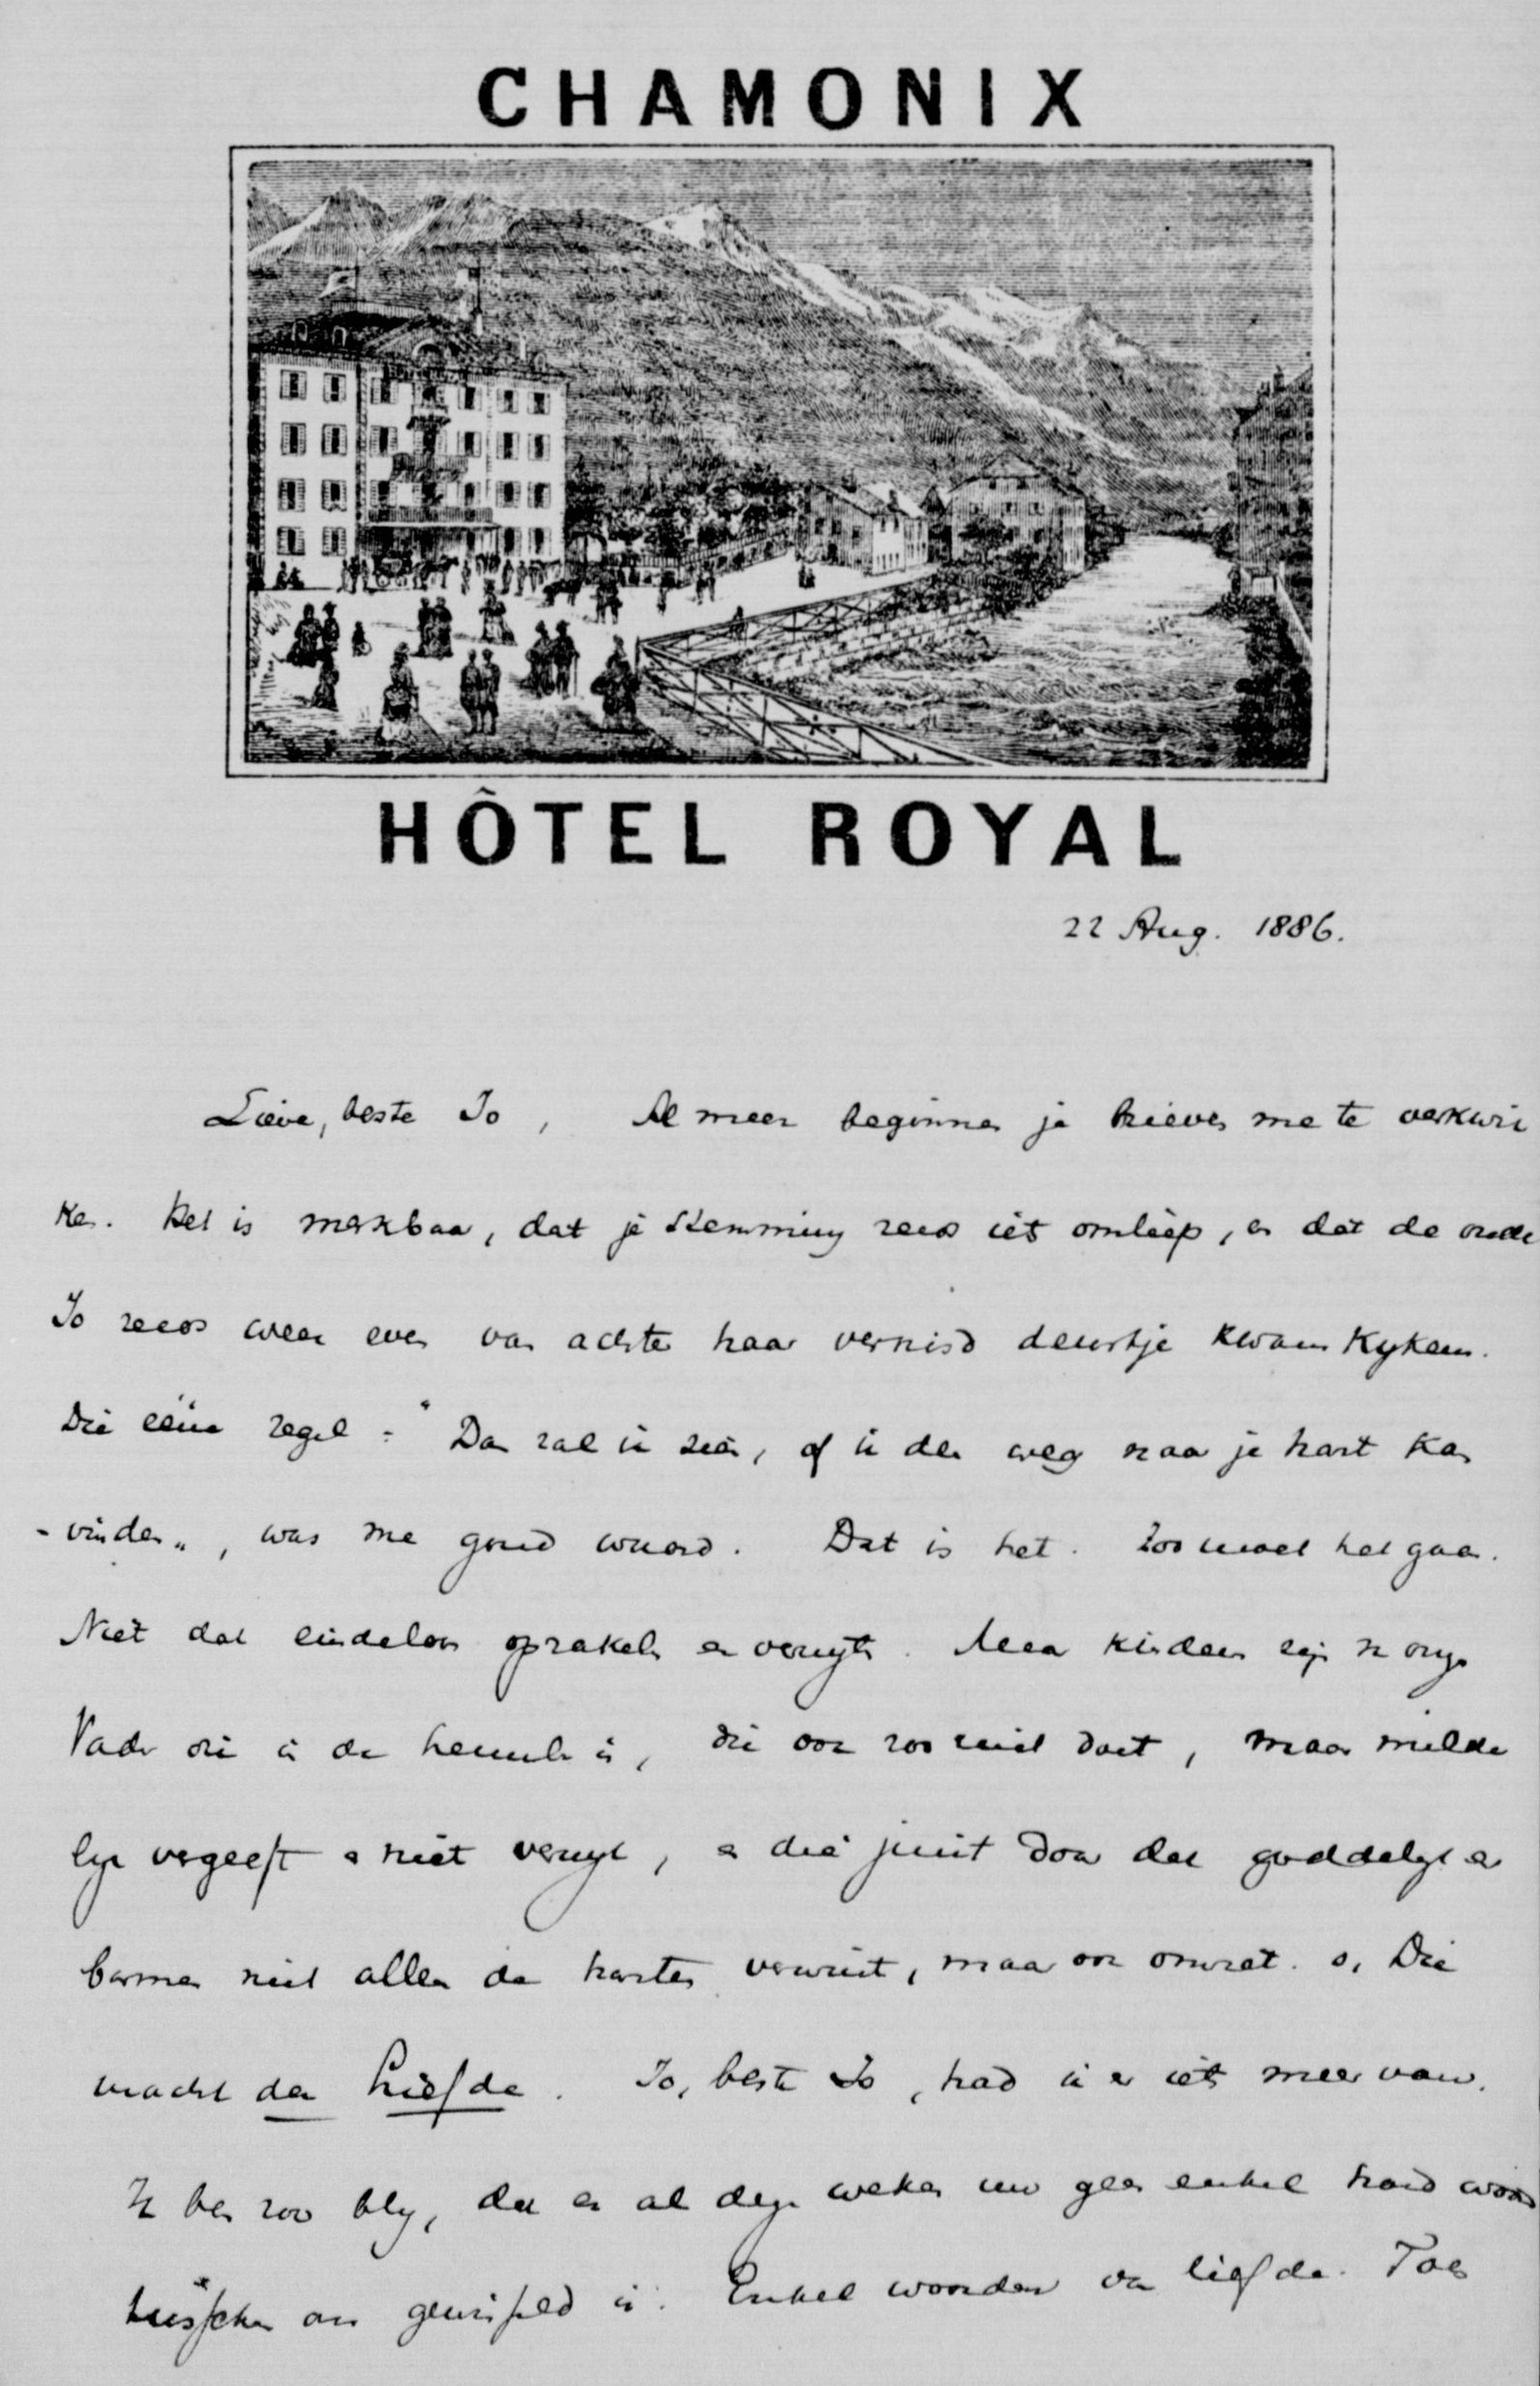 CHAMONIX
HÔTEL ROYAL
22 Aug. 1886.
Lieve, beste Jo, Al meer beginnen je brieven me te verkwik
ken. Het is merkbaar, dat je stemming reeds iets omliep, en dat de oude
Jo reeds weer even van achter haar vernisd deurtje kwam kyken.
Die ééne regel: "Dan zal ik zien, of ik den weg naar je hart kan
- vinden", was me goud waard. Dat is het. Zoo moet het gaan.
Niet dat eindeloos oprakelen en verwyten. Maar kinderen zyn v. onzen
Vader die in de hemelen is, die ook zoo niet doet, maar milde
lyk vergeeft en niet verwyt, en die juist door dat goddelyk er
barmen niet alleen de harten verwint, maar ook omzet. o, Die
macht der Liefde. Jo, beste Jo, had ik er iets meer van.
Ik ben zoo bly, dat er al deze weken nu geen enkel hard woord
tusschen ons gewisseld is. Enkel woorden van liefde. Toe